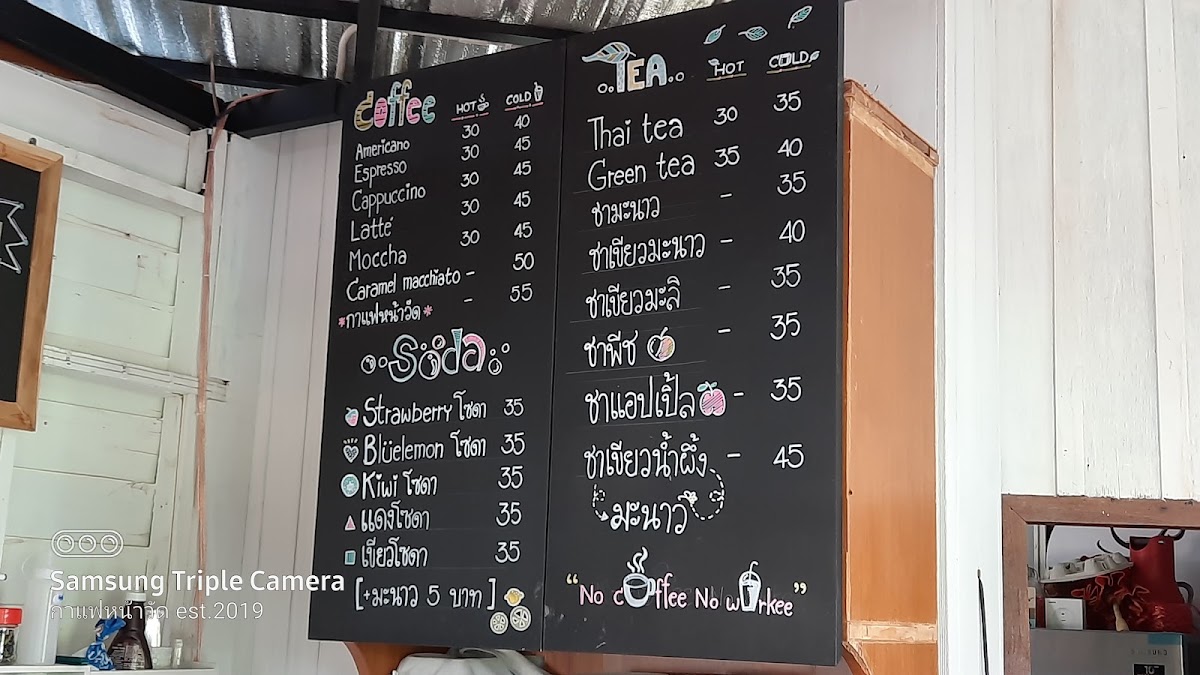 Coffee HOT COLD
Americano 30 40
Espresso 30 45
Cappuccino 30 45
Latté 30 45
Moccha 30 45
Caramel macchiato - 50
*กาแฟหน้าวัด* - 55
Soda
Strawberry โซดา 35
Blüelemon โซดา 35
Kiwi โซดา 35
แดงโซดา 35
เขียวโซดา 35
[+มะนาว 5 บาท]
TEA HOT COLD
Thai tea 30 35
Green tea 35 40
ชามะนาว - 35
ชาเขียวมะนาว - 40
ชาเขียวมะลิ - 35
ชาพีช - 35
ชาแอปเปิ้ล - 35
ชาเขียวน้ำผึ้ง - 45
มะนาว
"No coffee No workee"
Samsung Triple Camera
กาแฟหน้าวัด est.2019